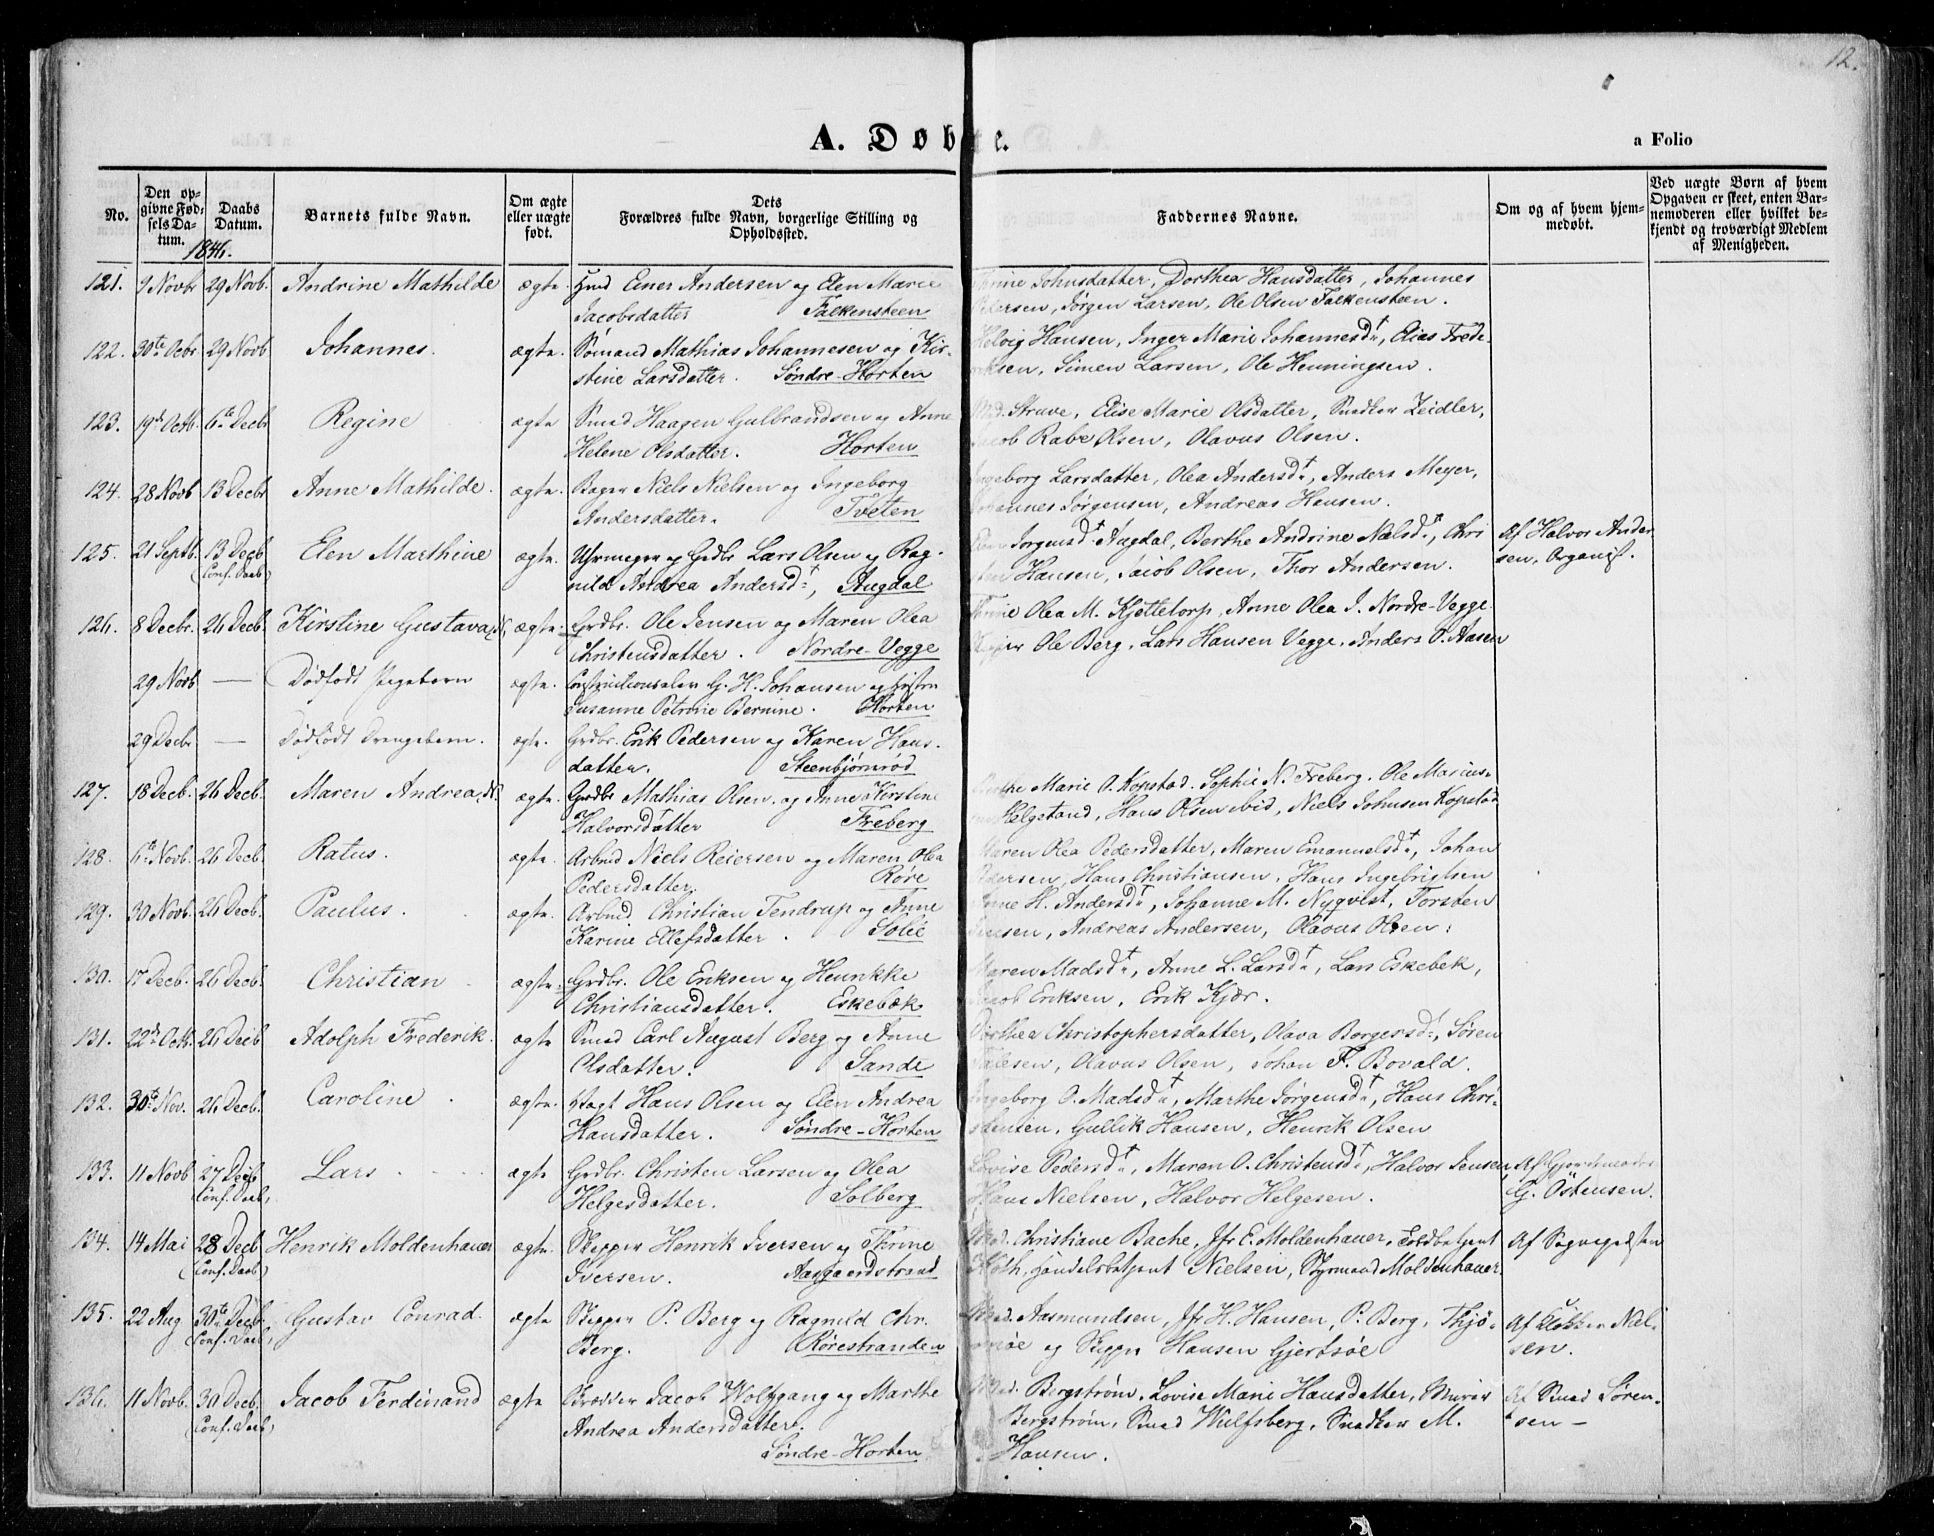 12.
A. Døbte.
a Folio
No.
Den opgivne Fødsels Datum.
Daabs Datum.
Barnets fulde Navn.
Om ægte eller uægte født.
Dets Forældres fulde Navn, borgerlige Stilling og Opholdssted.
Faddernes Navne.
Om og af hvem hjemmedøbt.
Ved uægte Børn af hvem Opgaven er skeet, enten Barnemoderen eller hvilket bekjendt og troværdigt Medlem af Menigheden.
1846.
121. 9 Novbr 29 Novb. Andrine Mathilde ægte. Huusmd Einer Andersen og Elen Marie Thrine Johnsdatter, Dorthea Hansdatter, Johannes
Jacobsdatter Falkensteen Pedersen, Jørgen Larsen, Ole Olsen Falkensteen.
122. 30te Ocbr 29 Novb Johannes. ægte. Sømand Mathias Johannesen og Kir- Helvig Hansen, Inger Marie Johannesd:, Elias Frede-
stine Larsdatter. Søndre-Horten riksen, Simen Larsen, Ole Henningsen.
123. 19de Octb. 6te Decbr Regine ægte Smed Haagen Gulbrandsen og Anne Mad. Struve, Elise Marie Olsdatter, Snedker Zeidler,
Helene Olsdatter. Horten Jacob Rabe Olsen, Olavus Olsen.
124. 28 Novb 13 Decbr Anne Mathilde. ægte. Bager Niels Nielsen og Ingeborg Ingeborg Larsdatter, Olea Andersd:, Anders Meyer,
Andersdatter. Tveten Johannes Jørgensen, Andreas Hansen.
125. 21 Septb. 13 Decb Elen Marthine ægte. Uhrmager og Grdbr Lars Olsen og Rag- Jørgensd: Augdal, Berthe Andrine Nielsd:, Chri Af Halvor Ander
(Conf. Daab) nild Andrea Andersd:, Augdal sten Hansen, Jacob Olsen, Thor Andersen. sen, Organist.
126. 8 Decbr. 26 Decb. Kirstine Gustava, N, ægte. Grdbr. Ole Jensen og Maren Olea Thrine Olea M. Kjøttetorp, Anne Olea J. Nordre-Vegge
Christensdatter. Nordre-Vegge Skipper Ole Berg, Lars Hansen Vegge, Anders O. Aasen
29 Novb — Dødfødt Pigebarn ægte. Constructionselev G. H. Johansen og Hustru
Susanne Petrine Bernine. Horten
29 Decbr — Dødfødt Drengebarn. ægte. Grdbr. Erik Pedersen og Karen Hans-
datter. Steenbjørnrød
127. 18 Decb. 26 Decb. Maren Andrea, N. ægte. Grdbr Mathias Olsen og Anne Kirstine Berthe Marie O. Kopstad, Sophie N. Freberg, Ole Marius-
Halvorsdatter Freberg sen Helgetand, Hans Olsen ibid, Niels Johnsen Kopstad
128. 6te Novb. 26 Decb. Ratus. ægte. Arbmd Niels Reiersen og Maren Olea Maren Olea Pedersdatter, Maren Emanuelsd:, Johan
Pedersdatter. Røre Pedersen, Hans Christiansen, Hans Ingebrigtsen
129. 30 Novb. 26 Decb. Paulus. ægte. Arbmd. Christian Tendrup og Anne Anne H. Andersd:, Johanne M. Nyqvist, Torsten
Karine Ellefsdatter. Solie Jensen, Andreas Andersen, Olavus Olsen.
130. 17 Decb. 26 Decb. Christian ægte. Grdbr. Ole Eriksen og Henrikke Maren Madsd:, Anne L. Larsd:, Lars Eskebek,
Christiansdatter. Eskebæk Jacob Eriksen, Erik Kjær.
131. 22de Octb. 26 Decb Adolph Frederik. ægte Smed Carl August Berg og Anne Dorthea Christophersdatter, Olava Borgersd:, Søren
Olsdatter. Sande Talesen, Olavus Olsen, Johan F. Bovald.
132. 30te Nov. 26 Decb. Caroline ægte. Vagt Hans Olsen og Elen Andrea Ingeborg O. Madsd:, Marthe Jørgensd:, Hans Chri-
Hansdatter. Søndre-Horten stensen, Gullik Hansen, Henrik Olsen
133. 11 Novb 27 Decb Lars ægte Grdbr. Christen Larsen og Olea Lovise Pedersd:, Maren O. Christensd:, Halvor Jensen, Af Gjordemoder
(Conf. Daab) Helgesdatter. Solberg Hans Nielsen, Halvor Helgesen. G. Östensen.
134. 14 Mai 28 Decb Henrik Moldenhauer ægte. Skipper Henrik Iversen og Thrine Mad. Christiane Bache, Jfr E. Moldenhauer, Toldbetjent Af Sognepræsten
(Conf. Daab) Iversen. Aasgaardstrand Koth, Handelsbetjent Nielsen, Styrmand Moldenhauer.
135. 22 Aug 30te Decb Gustav Conrad. ægte Skipper P. Berg og Ragnild Chr. Mad. Aasmundsen, Jfr H. Hansen, P. Berg, Thjø- Af Klokker Niel-
(Conf. Daab) Berg. Rørestranden møe og Skipper Hansen Gjertsøe sen.
136. 11 Novb. 30 Decb. Jacob Ferdinand ægte Jacob Wolfgang og Marthe Mad. Bergstrøm, Lovise Marie Hansdatter, Murer Af Smed Søren-
(Conf. Daab) Andrea Andersdatter. Bergstrøm, Smed Wulfsberg, Snedker M. sen —
Søndre-Horten Hansen.